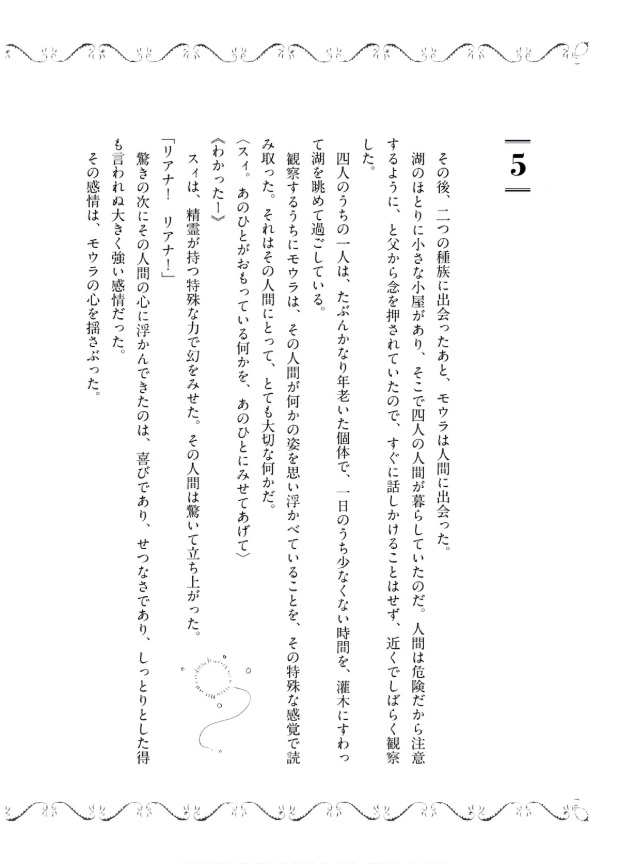 5
その後、二つの種族に出会ったあと、モウラは人間に出会った。
湖のほとりに小さな小屋があり、そこで四人の人間が暮らしていたのだ。人間は危険だから注意
するように、と父から念を押されていたので、すぐに話しかけることはせず、近くでしばらく観察
した。
四人のうちの一人は、たぶんかなり年老いた個体で、一日のうち少なくない時間を、灌木にすわっ
て湖を眺めて過ごしている。
観察するうちにモウラは、その人間が何かの姿を思い浮かべていることを、その特殊な感覚で読
み取った。それはその人間にとって、とても大切な何かだ。
〈スィ。あのひとがおもっている何かを、あのひとにみせてあげて〉
《わかったー》
スィは、精霊が持つ特殊な力で幻をみせた。その人間は驚いて立ち上がった。
「リアナ！　リアナ！」
驚きの次にその人間の心に浮かんできたのは、喜びであり、せつなさであり、しっとりとした得
も言われぬ大きく強い感情だった。
その感情は、モウラの心を揺さぶった。